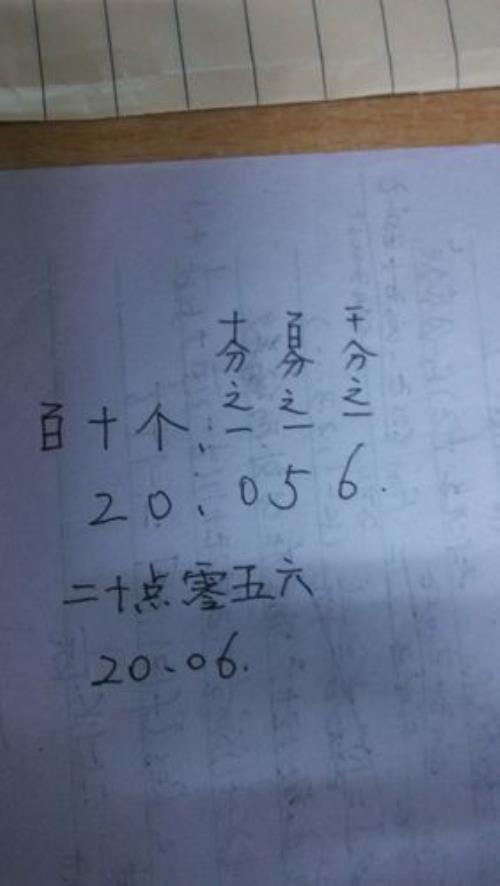 百十个.十分之一百分之一千分之一
20.056.
二十点零五六
20.06.